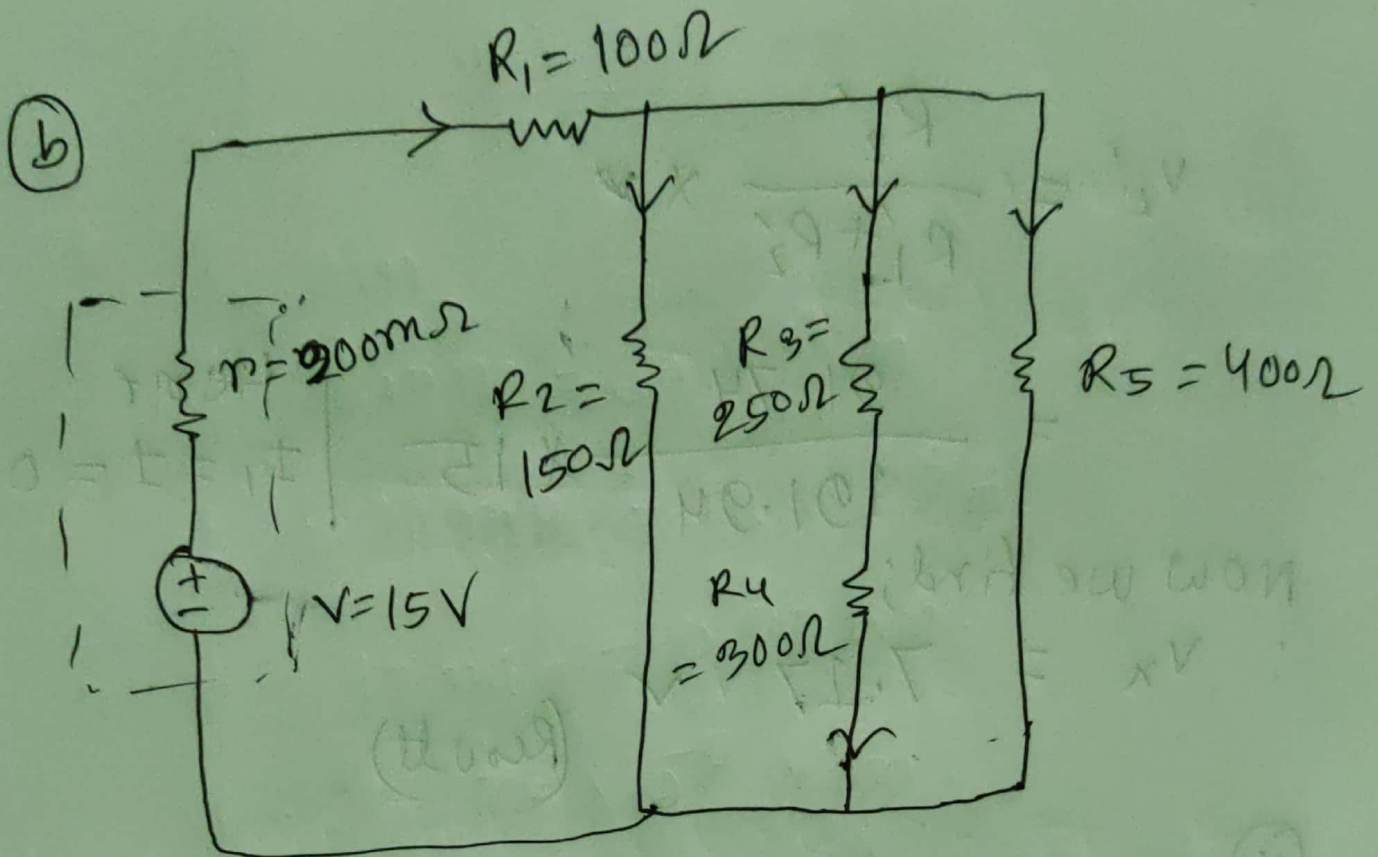 R₁ = 100Ω
(b)
r = 300mΩ
R2 =
150Ω
R3 =
250Ω
R5 = 400Ω
+
-
V=15V
R4
= 300Ω